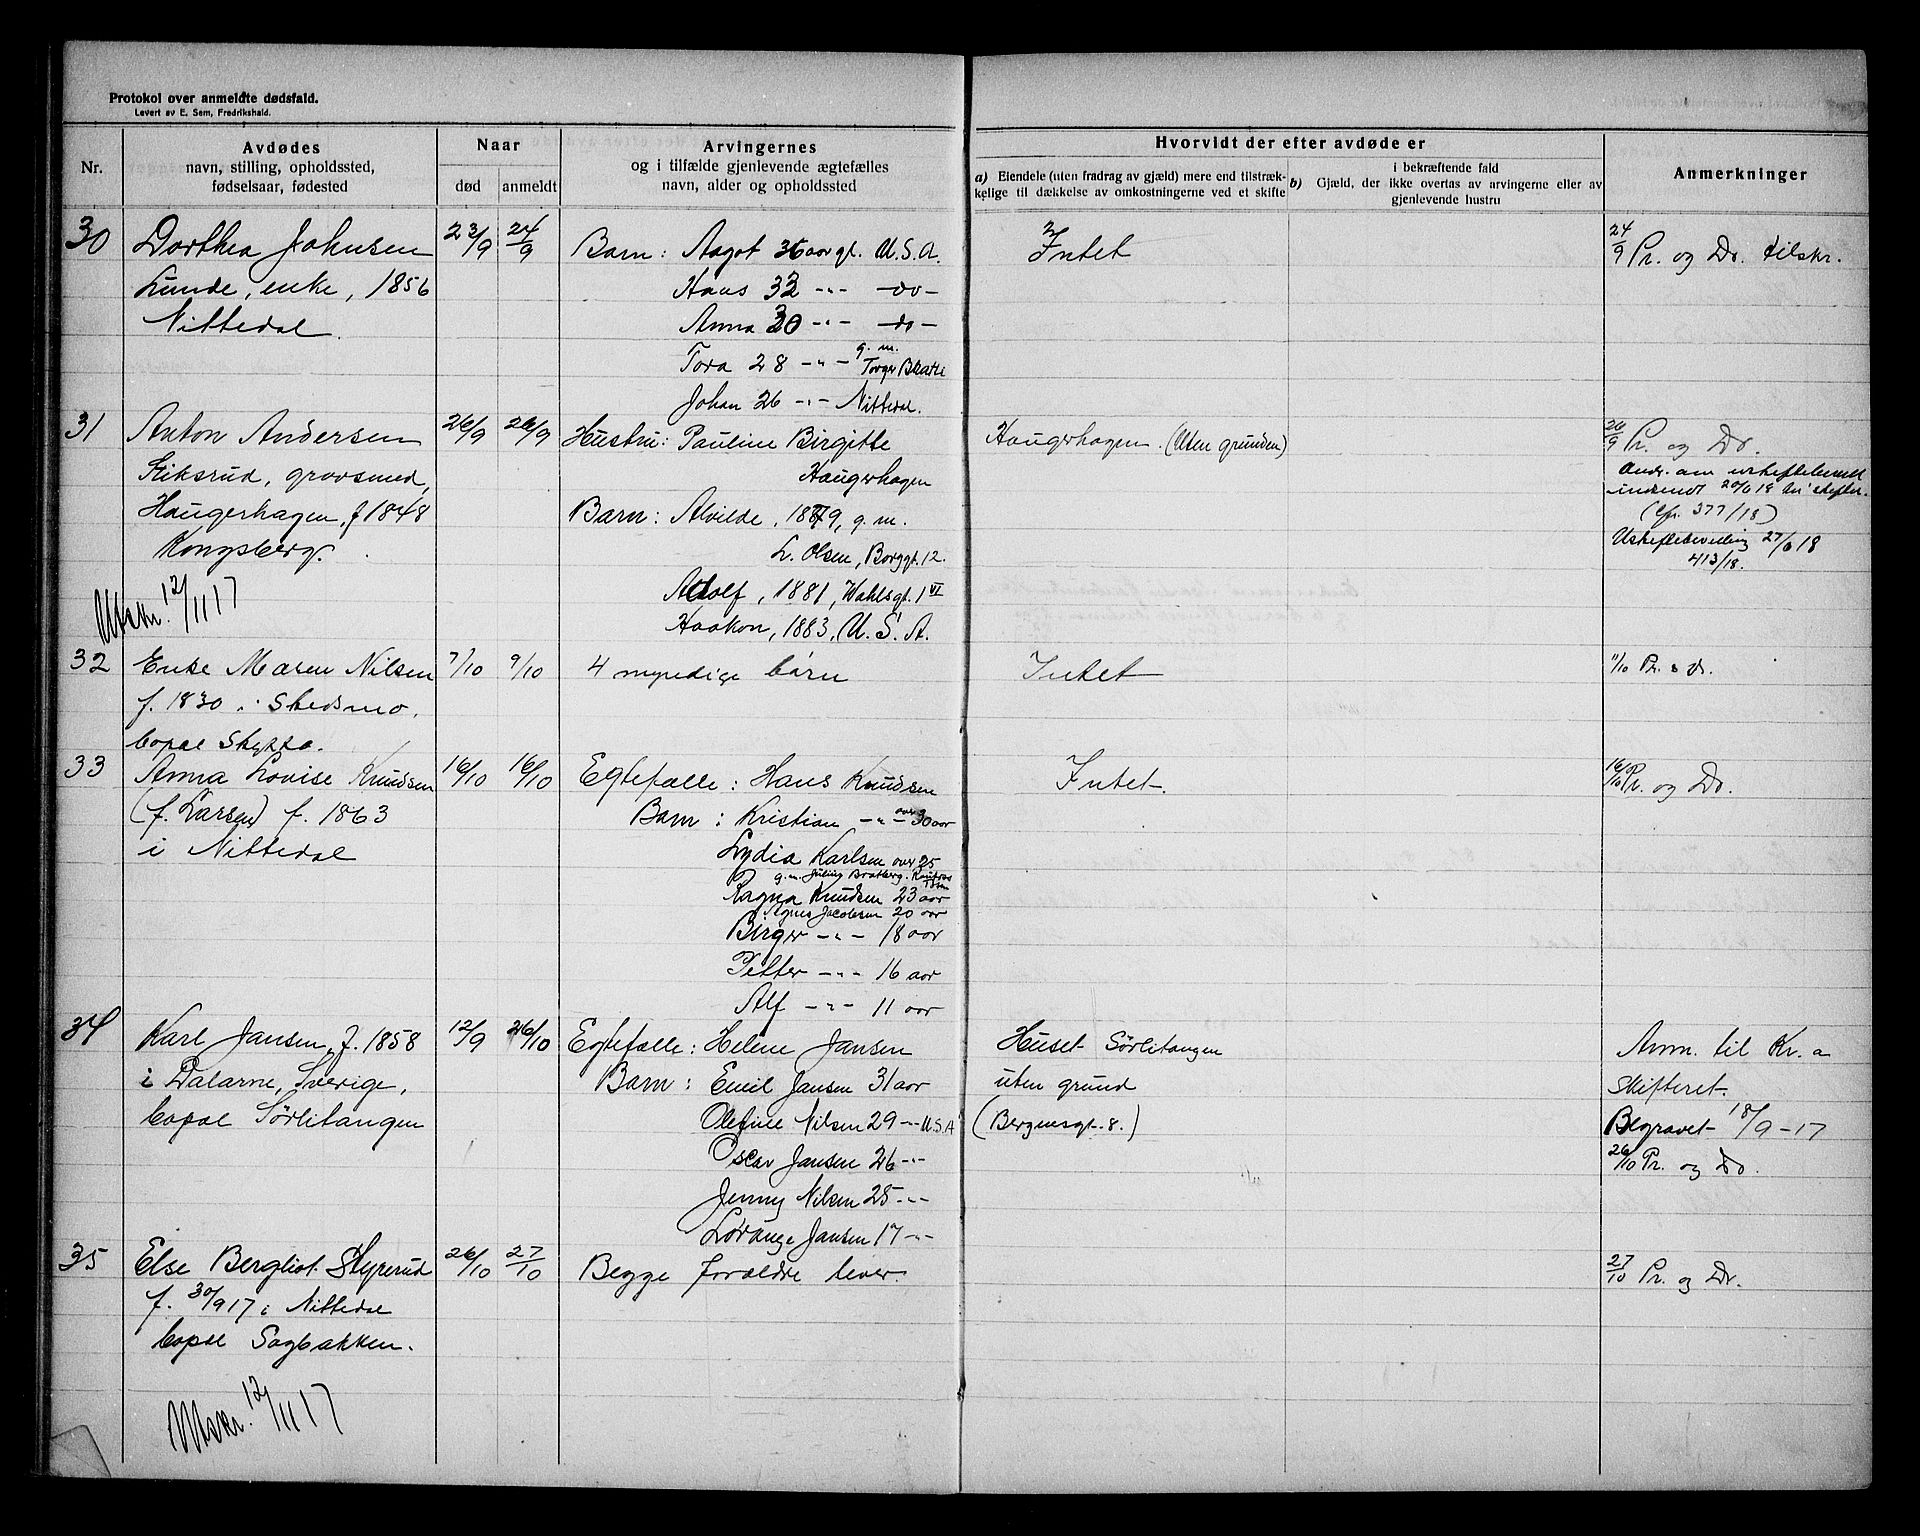 Protokol over anmeldte dødsfald.
Levert av E. Sem, Fredrikshald.
Nr.
Avdødes
navn, stilling, opholdssted,
fødselsaar, fødested
Naar
død
anmeldt
Arvingernes
og i tilfælde gjenlevende ægtefælles
navn, alder og opholdssted
Hvorvidt der efter avdøde er
a) Eiendele (uten fradrag av gjæld) mere end tilstræk-
kelige til dækkelse av omkostningerne ved et skifte
i bekræftende fald
b) Gjæld, der ikke overtas av arvingerne eller av
gjenlevende hustru
Anmerkninger
30
Dorthea Johnsen
Lunde, enke, 1856
Nittedal
23/9
24/9
Barn: Aagot 35 aar gl. U.S.A.
Hans 32 -"- -do-
Anna 30 -"- -do-
g. m.
Tora 28 -"- Torger Bratli
Johan 26 -"- Nittedal.
Intet
24/9 Pr. og Do. tilskr.
31
Anton Andersen
Stiksrud, grovsmed,
Haugerhagen, f 1848
Kongsberg.
Utskr. 12/11 17
26/9
26/9
Hustru: Pauline Birgitte
Haugerhagen
Barn: Alvilde, 1879, g. m.
L. Olsen, Borggt. 12.
Adolf, 1881, Wahlsgt. 1 VI
Haakon, 1883, U. S. A.
Haugerhagen. (Uten grunden)
26/9 Pr. og Do.
Andr. om uskiftebevill
indsendt 20/6 18 til skifter.
(cfr. 377/18)
Uskiftebevilling 27/6 18
413/18.
32
Enke Maren Nilsen
f. 1830 i Skedsmo,
bopæl Skytta.
7/10
9/10
4 myndige børn
Intet
11/10 Pr. & do.
33
Anna Lovise Knudsen
(f. Larsen) f. 1863
i Nittedal
16/10
16/10
Egtefælle: Hans Knudsen
Barn: Kristian -"- over 30 aar
Lydia Karlsen over 25
g. m. Julius Bratberg.
Ragna Knudsen 23 aar
Agnes Jacobsen 20 aar
Birger -"- 18 aar
Petter -"- 16 aar
Alf -"- 11 aar
Intet.
16/10 Pr. og Do.
34
Karl Jansen, f. 1858
i Dalarne, Sverige,
bopæl Sørlitangen
12/9
26/10
Egtefælle: Helene Jansen
Barn: Emil Jansen 31 aar
Olefine Nilsen 29 -"- U.S.A
Oscar Jansen 26 -"-
Jenny Nilsen 25 -"-
Lovange Jansen 17 -"-
Huset Sørlitangen
uten grund
(Bergnesgt. 8.)
Anm. til Kr.a
Skifteret.
Begravet 18/9-17
26/10 Pr. og Do.
35
Else Bergliot Styrerud
f. 30/9 17 i Nittedal
bopæl Sagbakken.
Utskr. 12/11 17
26/10
27/10
Begge forældre lever.
27/10 Pr. og Do.